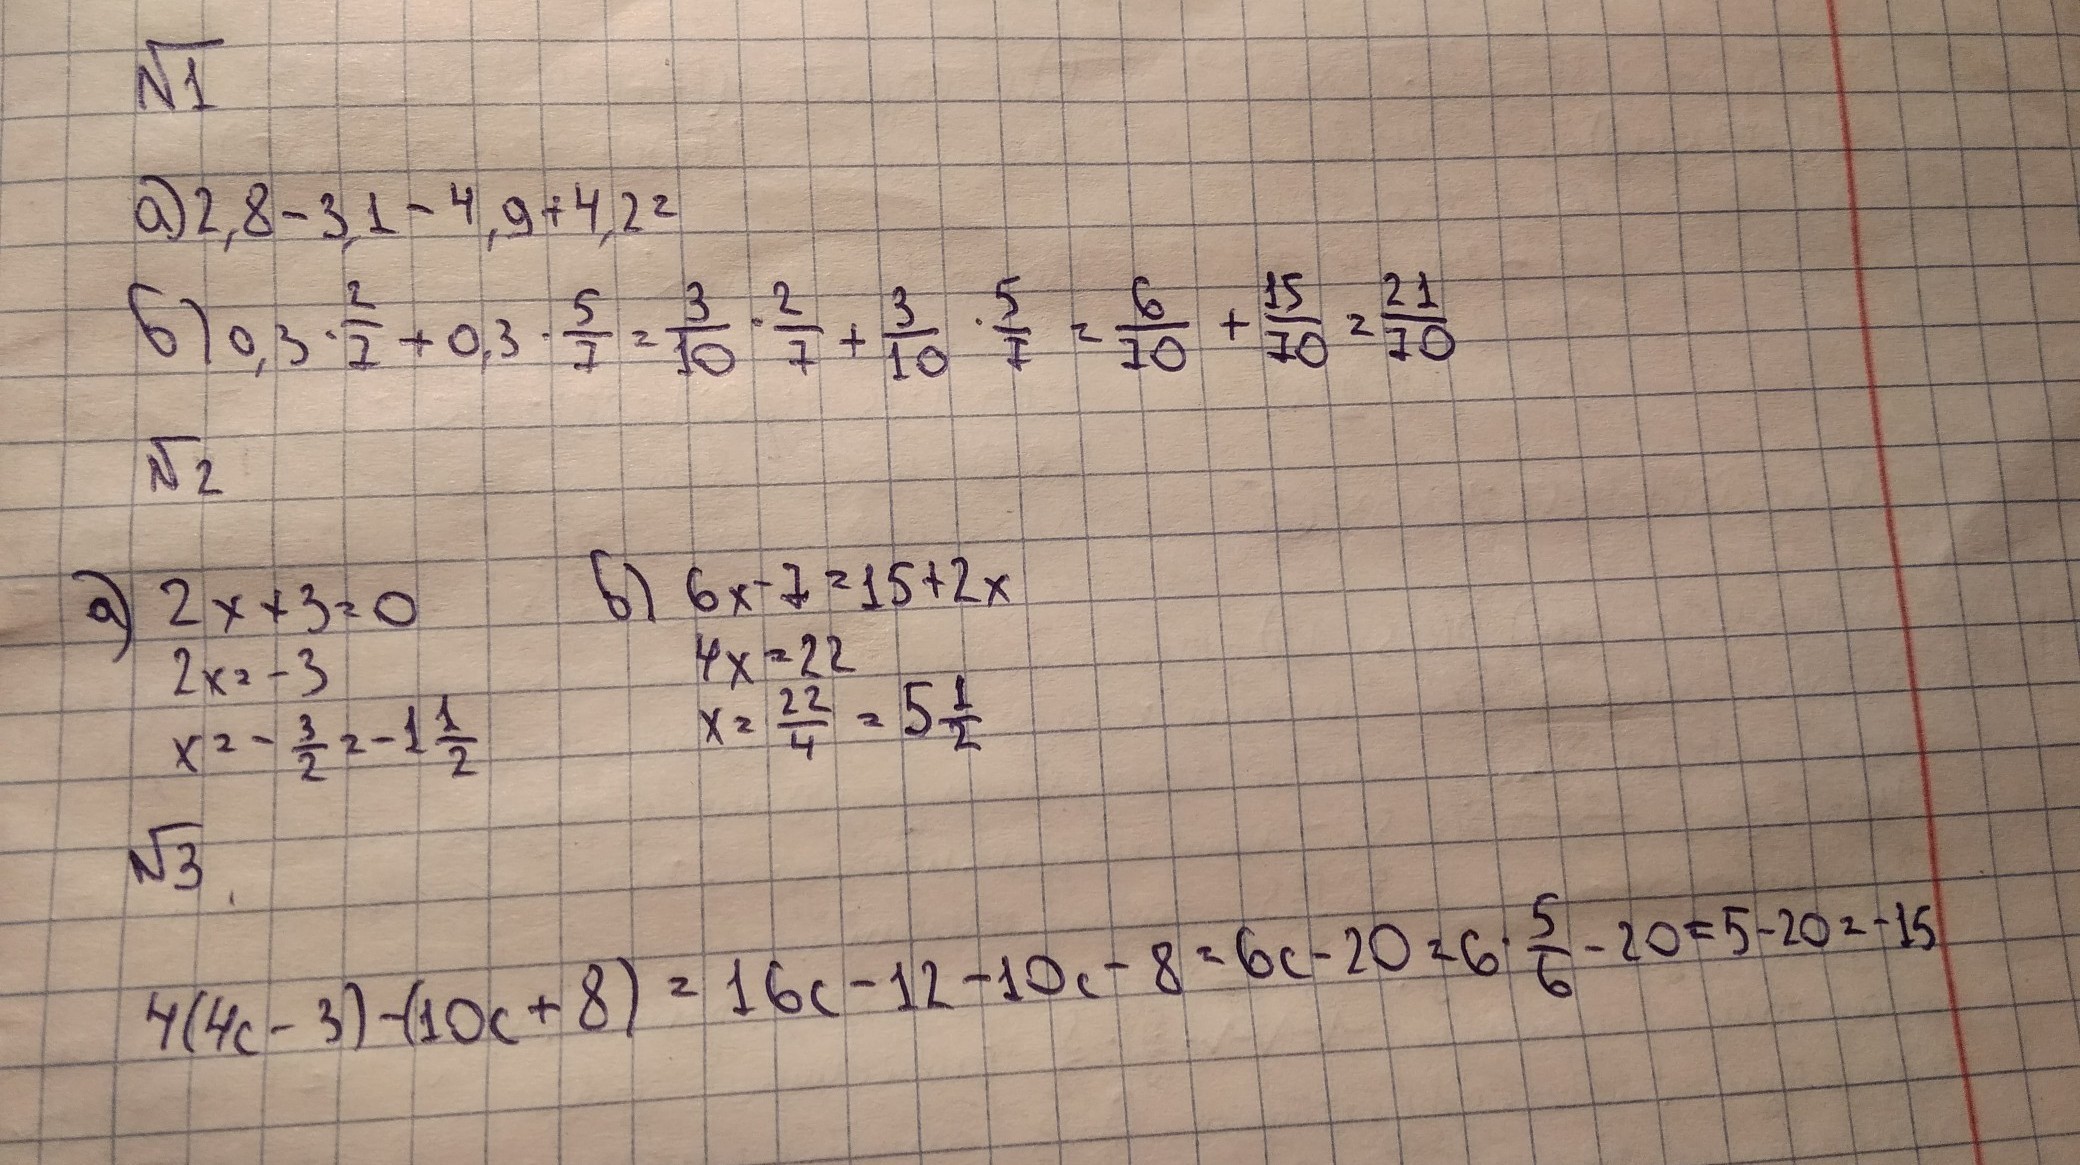 №1
а) 2,8 - 3,1 - 4,9 + 4,2 =
б) 0,3 · 2/7 + 0,3 · 5/7 = 3/10 · 2/7 + 3/10 · 5/7 = 6/70 + 15/70 = 21/70
№2
а) 2x + 3 = 0
2x = -3
x = - 3/2 = -1 1/2
б) 6x - 7 = 15 + 2x
4x = 22
x = 22/4 = 5 1/2
№3
4(4c - 3) - (10c + 8) = 16c - 12 - 10c - 8 = 6c - 20 = 6 · 5/6 - 20 = 5 - 20 = -15